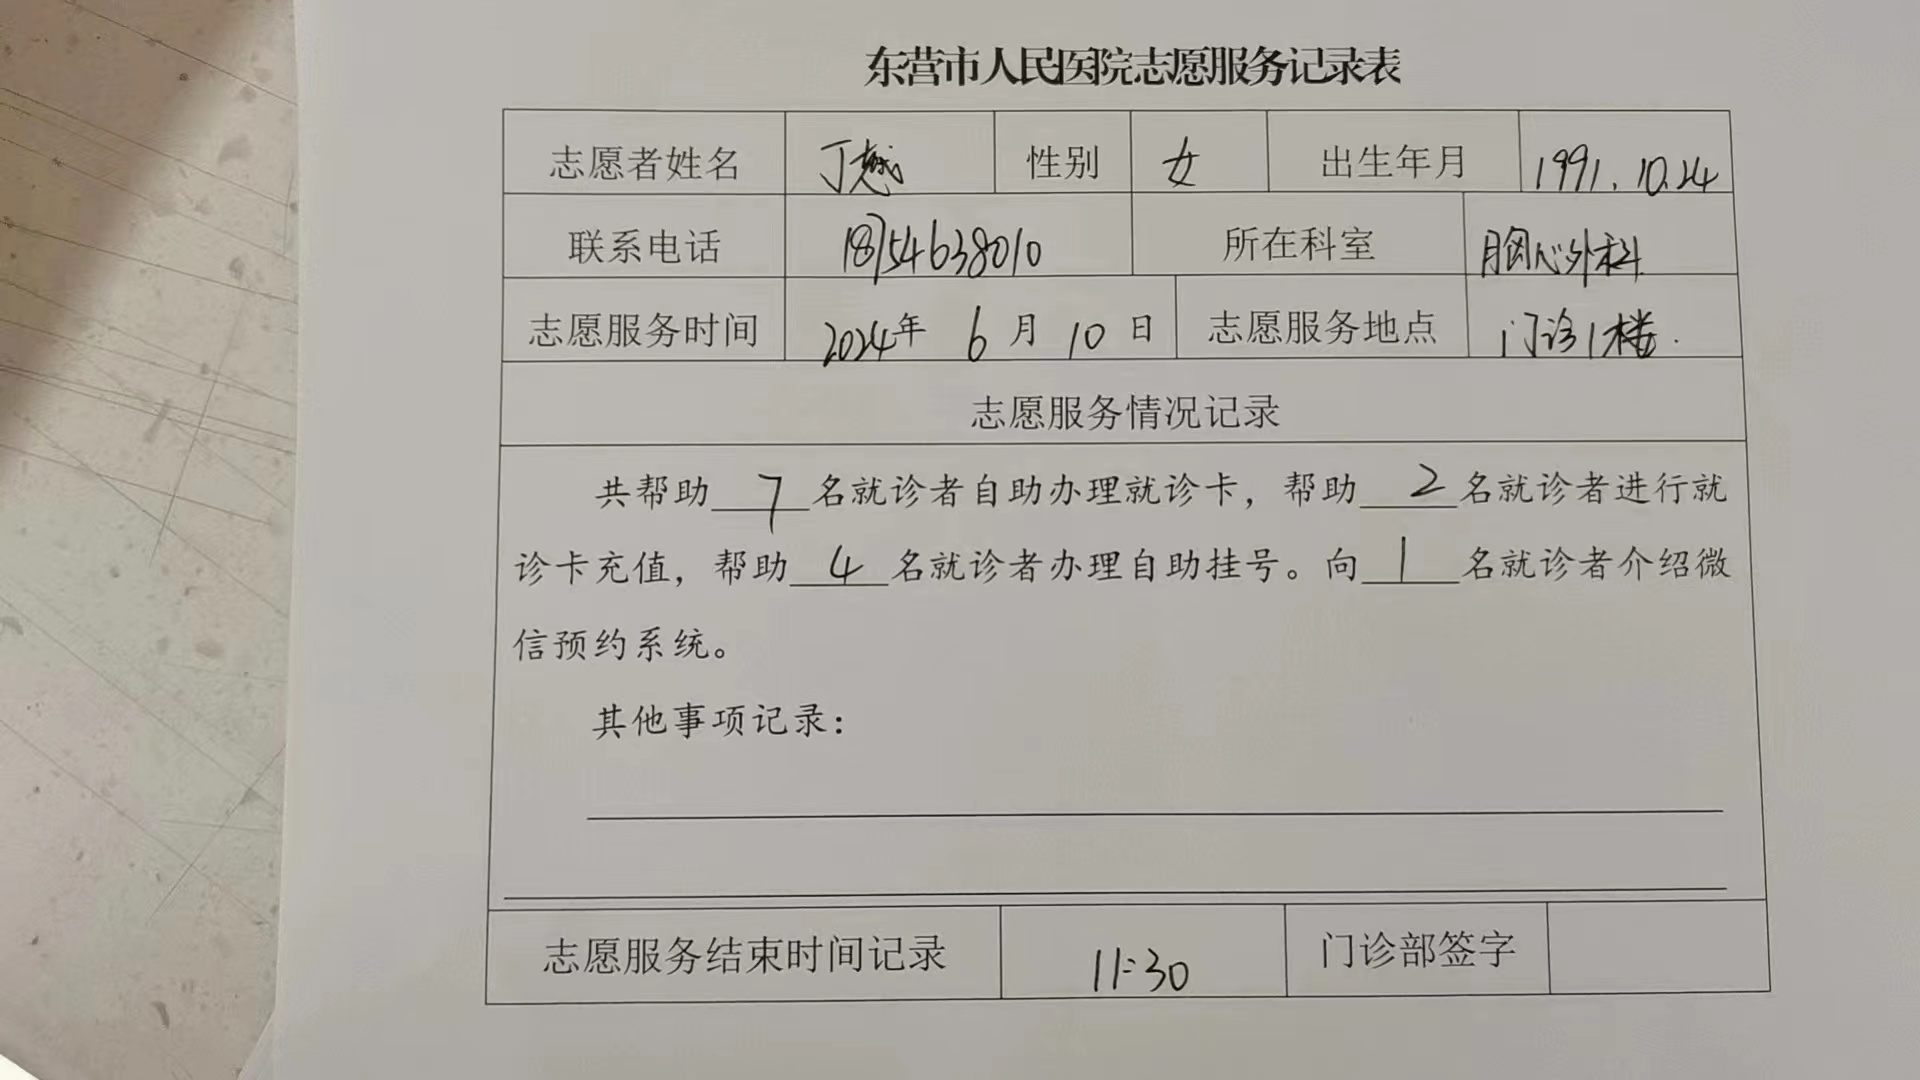 东营市人民医院志愿服务记录表
志愿者姓名 丁 性别 女 出生年月 1991.10.24
联系电话 18754638010 所在科室 胸心外科
志愿服务时间 2024年 6 月 10 日 志愿服务地点 门诊1楼.
志愿服务情况记录
共帮助 7 名就诊者自助办理就诊卡，帮助 2 名就诊者进行就
诊卡充值，帮助 4 名就诊者办理自助挂号。向 1 名就诊者介绍微
信预约系统。
其他事项记录：
志愿服务结束时间记录 11:30 门诊部签字